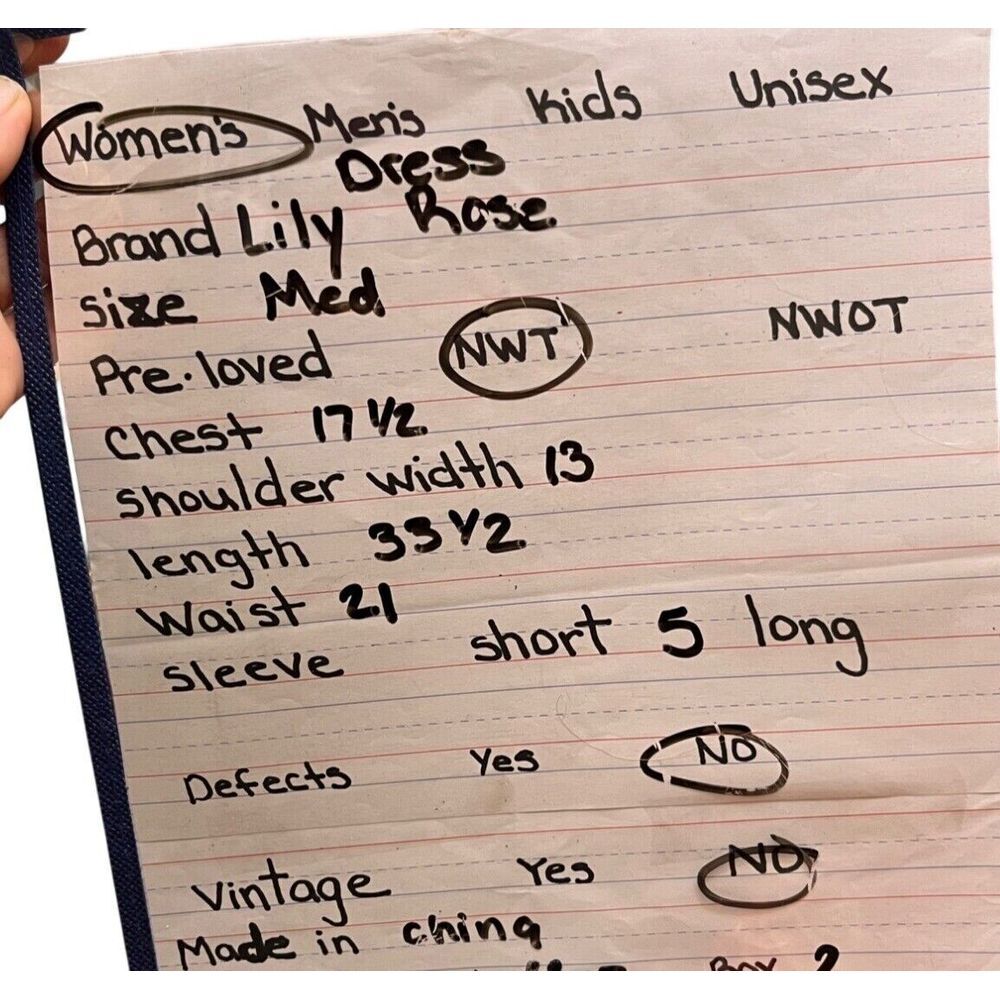 Women's Men's Kids Unisex
Dress
Brand Lily Rose
Size Med
Pre-loved NWT NWOT
Chest 17 1/2
shoulder width 13
length 33 1/2
Waist 21
sleeve short 5 long
Defects Yes NO
Vintage Yes NO
Made in china
Box 2